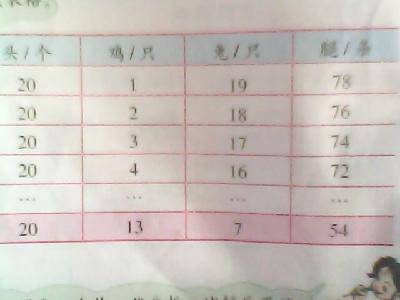 头/个 鸡/只 兔/只 腿/条
20 1 19 78
20 2 18 76
20 3 17 74
20 4 16 72
... ... ... ...
20 13 7 54